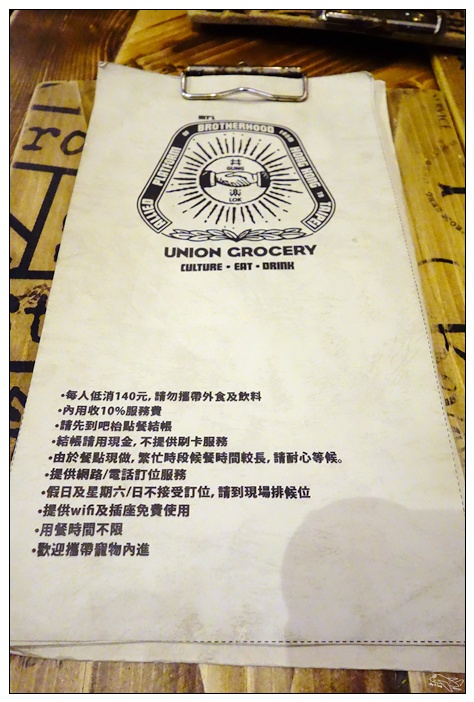 BROTHERHOOD
PLATFORM
HONG KONG
TAIPEI
共
GUNG
樂
LOK
UNION GROCERY
CULTURE • EAT • DRINK
•每人低消140元, 請勿攜帶外食及飲料
•內用收10%服務費
•請先到吧枱點餐結帳
•結帳請用現金, 不提供刷卡服務
•由於餐點現做, 繁忙時段候餐時間較長, 請耐心等候。
•提供網路/電話訂位服務
•假日及星期六/日不接受訂位, 請到現場排候位
•提供wifi及插座免費使用
•用餐時間不限
•歡迎攜帶寵物內進